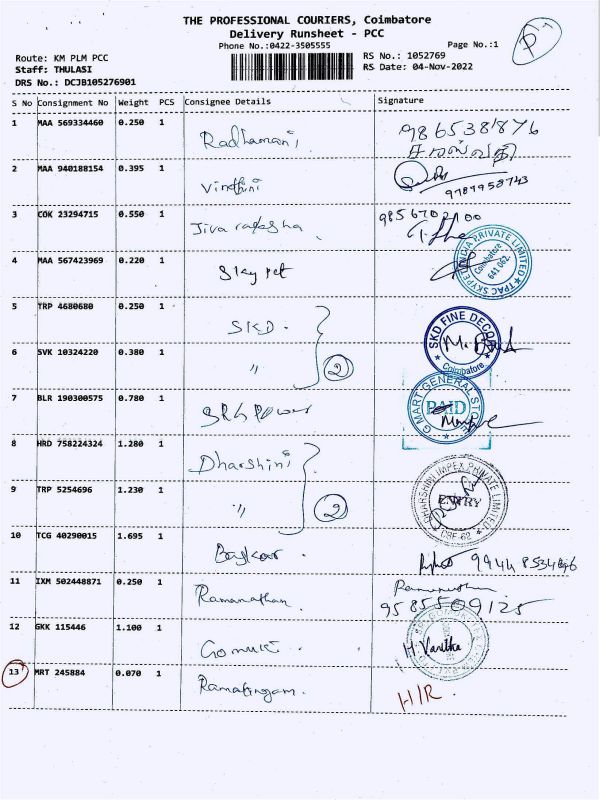 THE PROFESSIONAL COURIERS, Coimbatore
Delivery Runsheet - PCC
Phone No.:0422-3505555
Page No.:1
Route: KM PLM PCC
RS No.: 1052769
Staff: THULASI
RS Date: 04-Nov-2022
DRS No.: DCJB105276901
S No Consignment No Weight PCS Consignee Details Signature
1 MAA 569334460 0.250 1 Radhamani 9865381876
சரஸ்வதி
2 MAA 940188154 0.395 1 Vindhini
9787958743
3 COK 23294715 0.550 1 Jiva
4 MAA 567423969 0.220 1 Sky pet
TPAC SKYPET INDIA PRIVATE LIMITED
Coimbatore
641 062.
5 TRP 4680680 0.250 1 SKD.
SKD FINE DECOR
Coimbatore
6 SVK 10324220 0.380 1 "
2
7 BLR 190300575 0.780 1 SRG Power
G MART GENERAL
PAID
8 HRD 758224324 1.280 1 Dharshini
DHARSHINI IMPEX PRIVATE LIMITED
ENTRY
CBE-62
9 TRP 5254696 1.230 1 "
2
10 TCG 40290015 1.695 1 Baskar
11 IXM 502448871 0.250 1 Ramanathan.
9585509125
12 GKK 115446 1.100 1 Gomuki
H. Vanitha
13 MRT 245884 0.070 1 Ramalingam.
H/R.